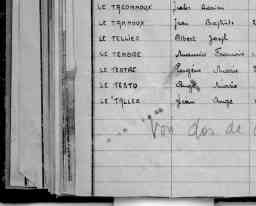 LE TACONNOUX Jules
LE TANNOUX Jean Baptiste
LE TELLIER Albert Joseph
LE TENDRE Francois
LE TERTRE Eugène Marie
LE TESTO Ange Marie
LE TALLEC Jean Ange
Voir dos de